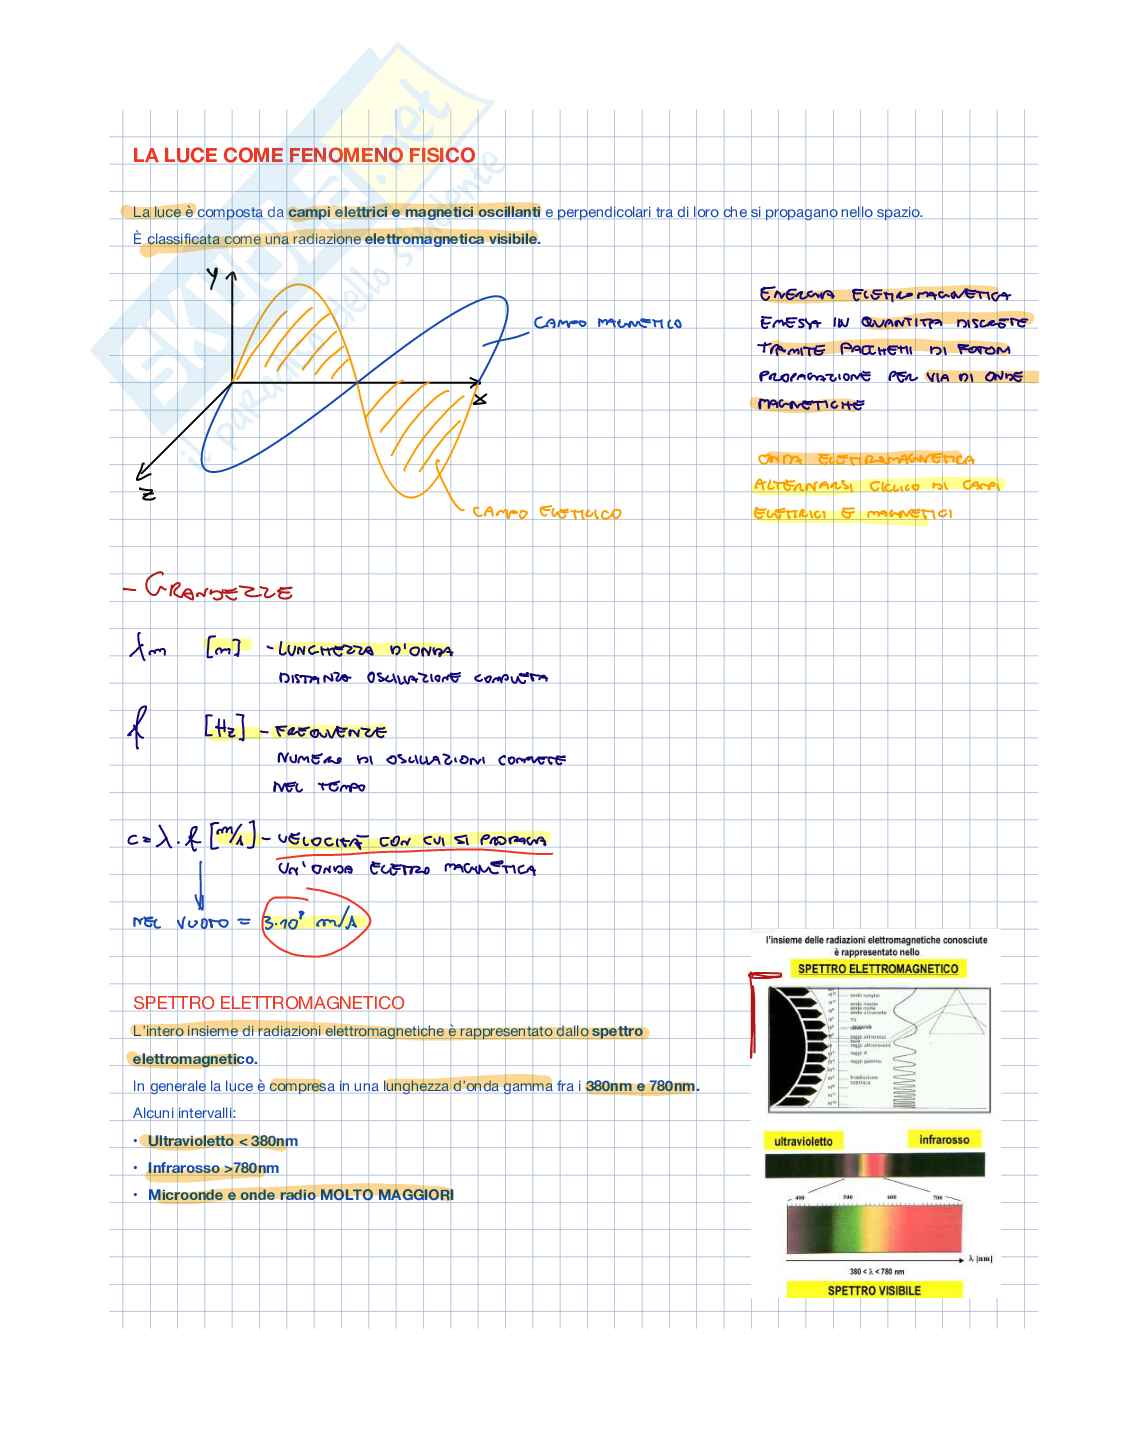 LA LUCE COME FENOMENO FISICO
La luce è composta da campi elettrici e magnetici oscillanti e perpendicolari tra di loro che si propagano nello spazio.
È classificata come una radiazione elettromagnetica visibile.
Y
CAMPO MAGNETICO
X
Z
CAMPO ELETTRICO
ENERGIA ELETTROMAGNETICA
EMESSA IN QUANTITÀ DISCRETE
TRAMITE PACCHETTI DI FOTONI
PROPAGAZIONE PER VIA DI ONDE
MAGNETICHE
ONDA ELETTROMAGNETICA
ALTERNARSI CICLICO DI CAMPI
ELETTRICI E MAGNETICI
- GRANDEZZE
λm [m] - LUNGHEZZA D'ONDA
DISTANZA OSCILLAZIONE COMPLETA
f [Hz] - FREQUENZE
NUMERO DI OSCILLAZIONI COMPLETE
NEL TEMPO
c = λ · f [m/s] - VELOCITÀ CON CUI SI PROPAGA
UN'ONDA ELETTRO MAGNETICA
NEL VUOTO = 3·10⁸ m/s
SPETTRO ELETTROMAGNETICO
L'intero insieme di radiazioni elettromagnetiche è rappresentato dallo spettro
elettromagnetico.
In generale la luce è compresa in una lunghezza d'onda gamma fra i 380nm e 780nm.
Alcuni intervalli:
• Ultravioletto < 380nm
• Infrarosso >780nm
• Microonde e onde radio MOLTO MAGGIORI
l'insieme delle radiazioni elettromagnetiche conosciute
è rappresentato nello
SPETTRO ELETTROMAGNETICO
ultravioletto infrarosso
400 500 600 700
λ [nm]
380 < λ < 780 nm
SPETTRO VISIBILE
SKUOLA.net
il paradiso dello studente